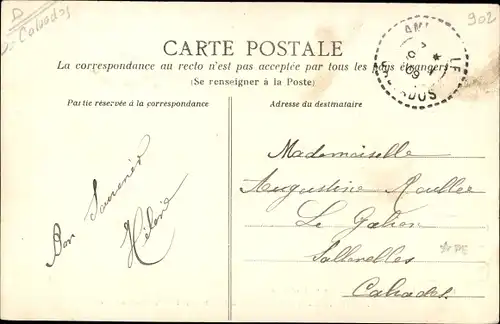 D
Calvados
902
CARTE POSTALE
La correspondance au recto n'est pas acceptée par tous les pays étrangers
(Se renseigner à la Poste)
Partie réservée à la correspondance
Adresse du destinataire
Bon Souvenir
Hélène
Mademoiselle
Augustine Roullée
Le
Sallenelles
Calvados
09
LE